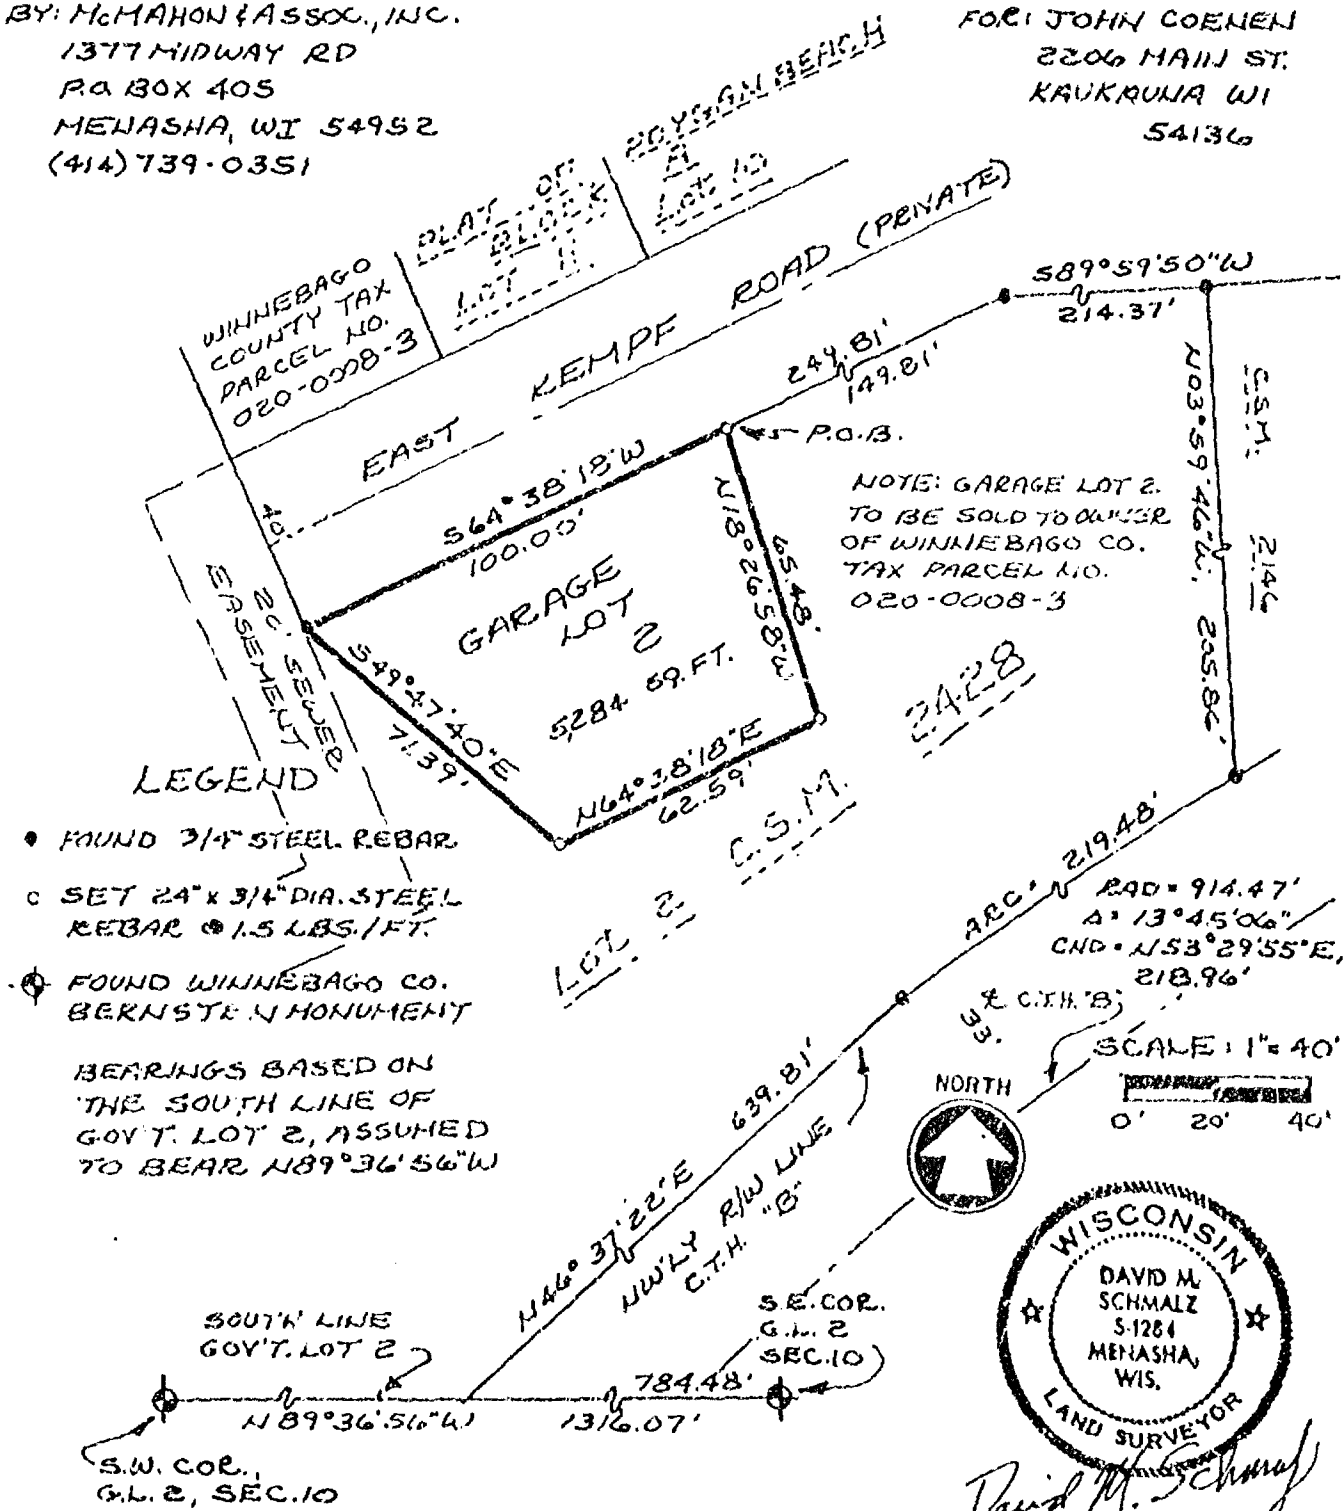 BY: McMAHON & ASSOC., INC.
1377 MIDWAY RD
P.O. BOX 405
MENASHA, WI 54952
(414) 739-0351
FOR: JOHN COENEN
2206 MAIN ST.
KAUKAUNA WI
54136
PLAT OF
BLOCK
LOT 11
POYGAN BEACH
A
LOT 10
WINNEBAGO
COUNTY TAX
PARCEL NO.
020-0008-3
EAST KEMPF ROAD (PRIVATE)
S89°59'50"W
214.37'
249.81'
149.81'
P.O.B.
N03°59'46"W, 205.86'
C.S.M. 2146
40'
S64°38'18"W
100.00'
N18°26'58"W
65.48'
NOTE: GARAGE LOT 2
TO BE SOLD TO OWNER
OF WINNEBAGO CO.
TAX PARCEL NO.
020-0008-3
GARAGE
LOT
2
5,284 SQ. FT.
20' SEWER
EASEMENT
S49°47'40"E
71.39'
N64°38'18"E
62.59'
LOT 2 C.S.M. 2428
LEGEND
FOUND 3/4" STEEL REBAR
SET 24" x 3/4" DIA. STEEL
REBAR @ 1.5 LBS./FT.
FOUND WINNEBAGO CO.
BERNSTEIN MONUMENT
BEARINGS BASED ON
THE SOUTH LINE OF
GOV'T. LOT 2, ASSUMED
TO BEAR N89°36'56"W
ARC' 219.48'
RAD = 914.47'
Δ = 13°45'06"
CHD = N53°29'55"E,
218.96'
℄ C.T.H. "B"
33'
SCALE: 1" = 40'
0' 20' 40'
NORTH
639.81'
N46°37'22"E
NW'LY R/W LINE
C.T.H. "B"
SOUTH LINE
GOV'T. LOT 2
S.E. COR.
G.L. 2
SEC. 10
784.48'
N89°36'56"W 1316.07'
S.W. COR.,
G.L. 2, SEC. 10
WISCONSIN
DAVID M.
SCHMALZ
S-1284
MENASHA,
WIS.
LAND SURVEYOR
David M. Schmalz